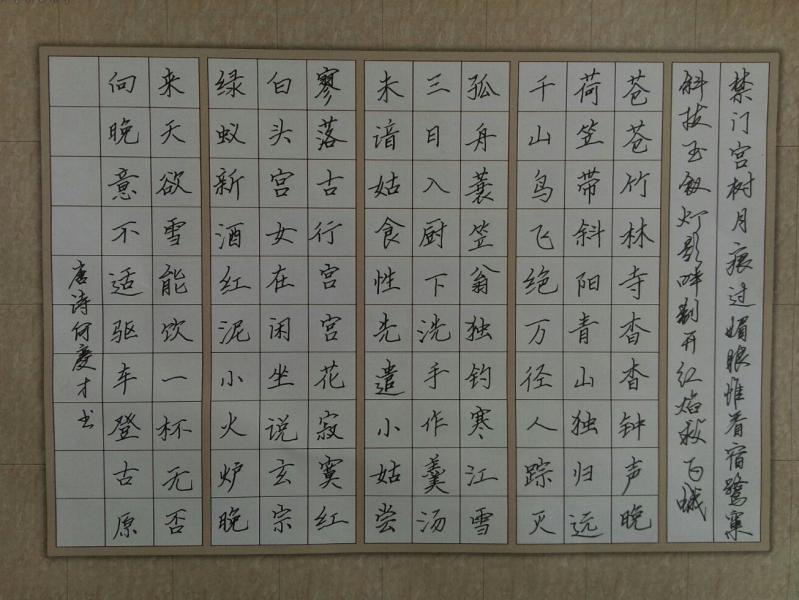 禁门宫树月痕过媚眼惟看宿鹭窠
斜拔玉钗灯影畔剔开红焰救飞蛾
苍苍竹林寺杳杳钟声晚
荷笠带斜阳青山独归远
千山鸟飞绝万径人踪灭
孤舟蓑笠翁独钓寒江雪
三日入厨下洗手作羹汤
未谙姑食性先遣小姑尝
寥落古行宫宫花寂寞红
白头宫女在闲坐说玄宗
绿蚁新酒红泥小火炉晚
来天欲雪能饮一杯无否
向晚意不适驱车登古原
唐诗何庆才书